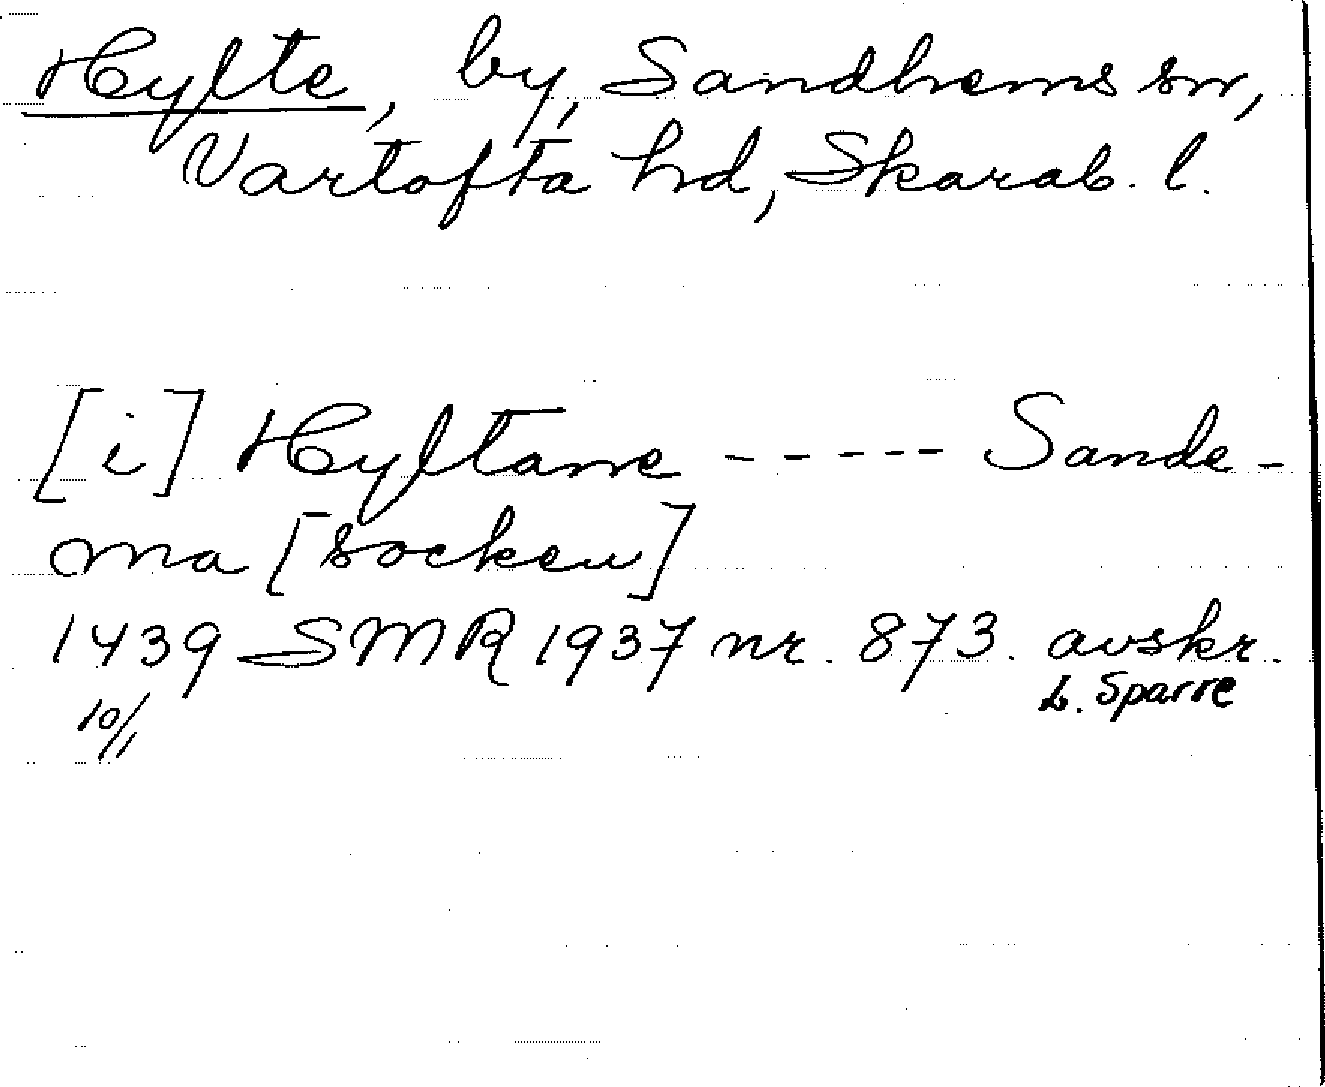 Hylte, by, Sandhems sn,
Vartofta hd, Skarab. l.
[i] Hyltane ----- Sande-
ma [socken]
1439 SMR 1937 nr. 873. avskr.
10/1 L. Sparre